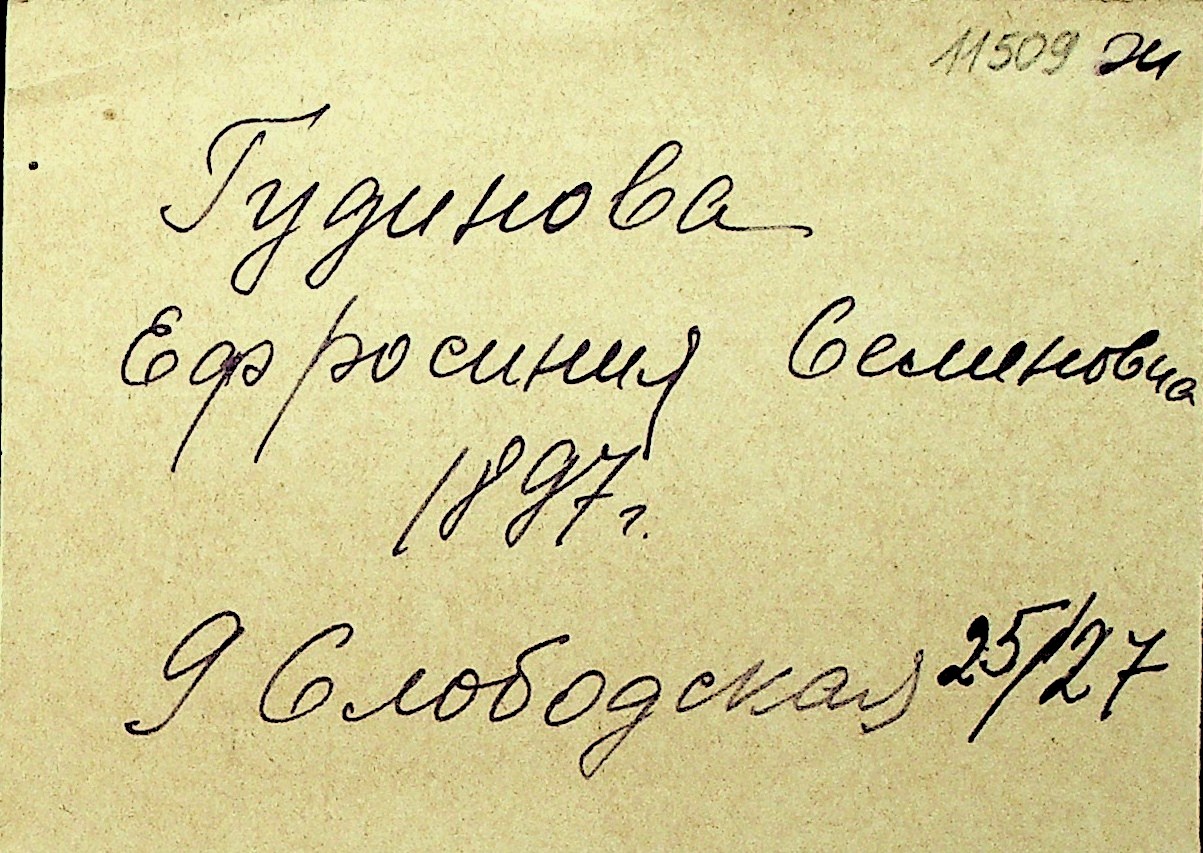 11509 ж
Гудинова
Ефросиния Семеновна
1897г.
9 Слободская 25/27